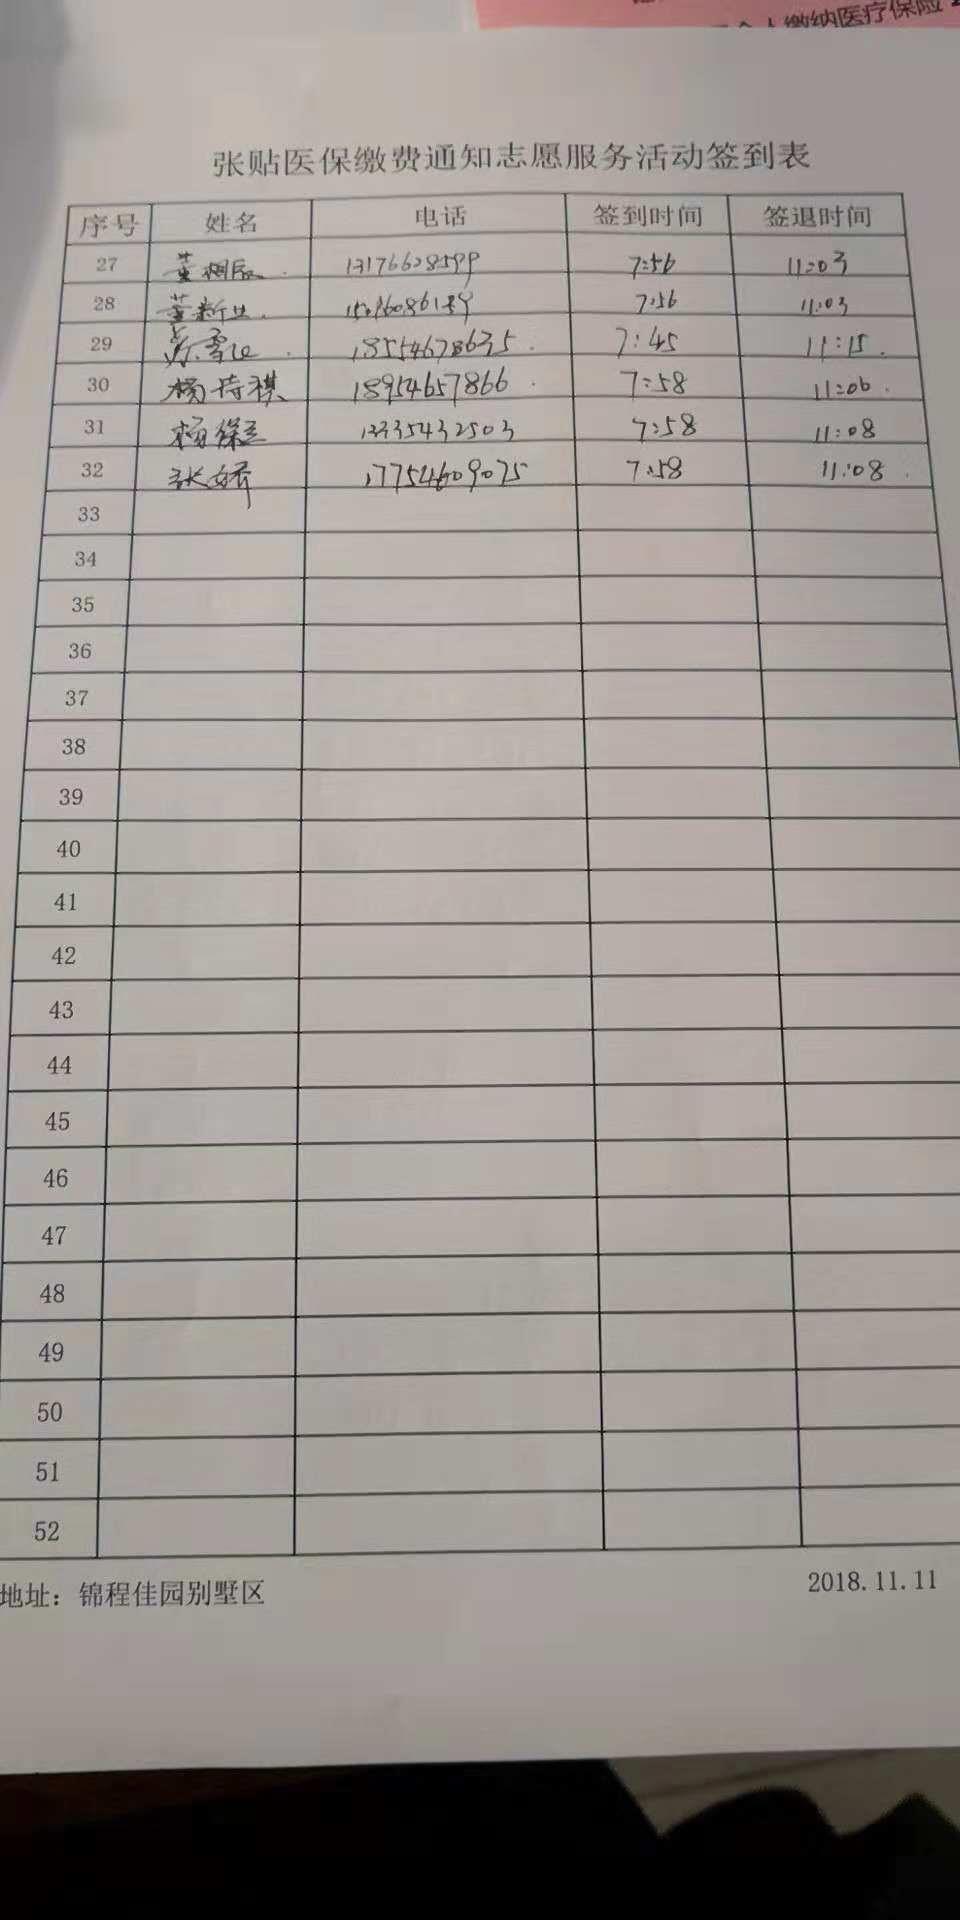 个人缴纳医疗保险
张贴医保缴费通知志愿服务活动签到表
序号 姓名 电话 签到时间 签退时间
27 董 13176628599 7:56 11:03
28 董新 7:56 11:03
29 18554678635 7:45 11:15
30 杨 18954657866 7:58 11:06
31 杨 13335432503 7:58 11:08
32 张娇 17754609075 7:58 11:08
33
34
35
36
37
38
39
40
41
42
43
44
45
46
47
48
49
50
51
52
地址：锦程佳园别墅区 2018.11.11